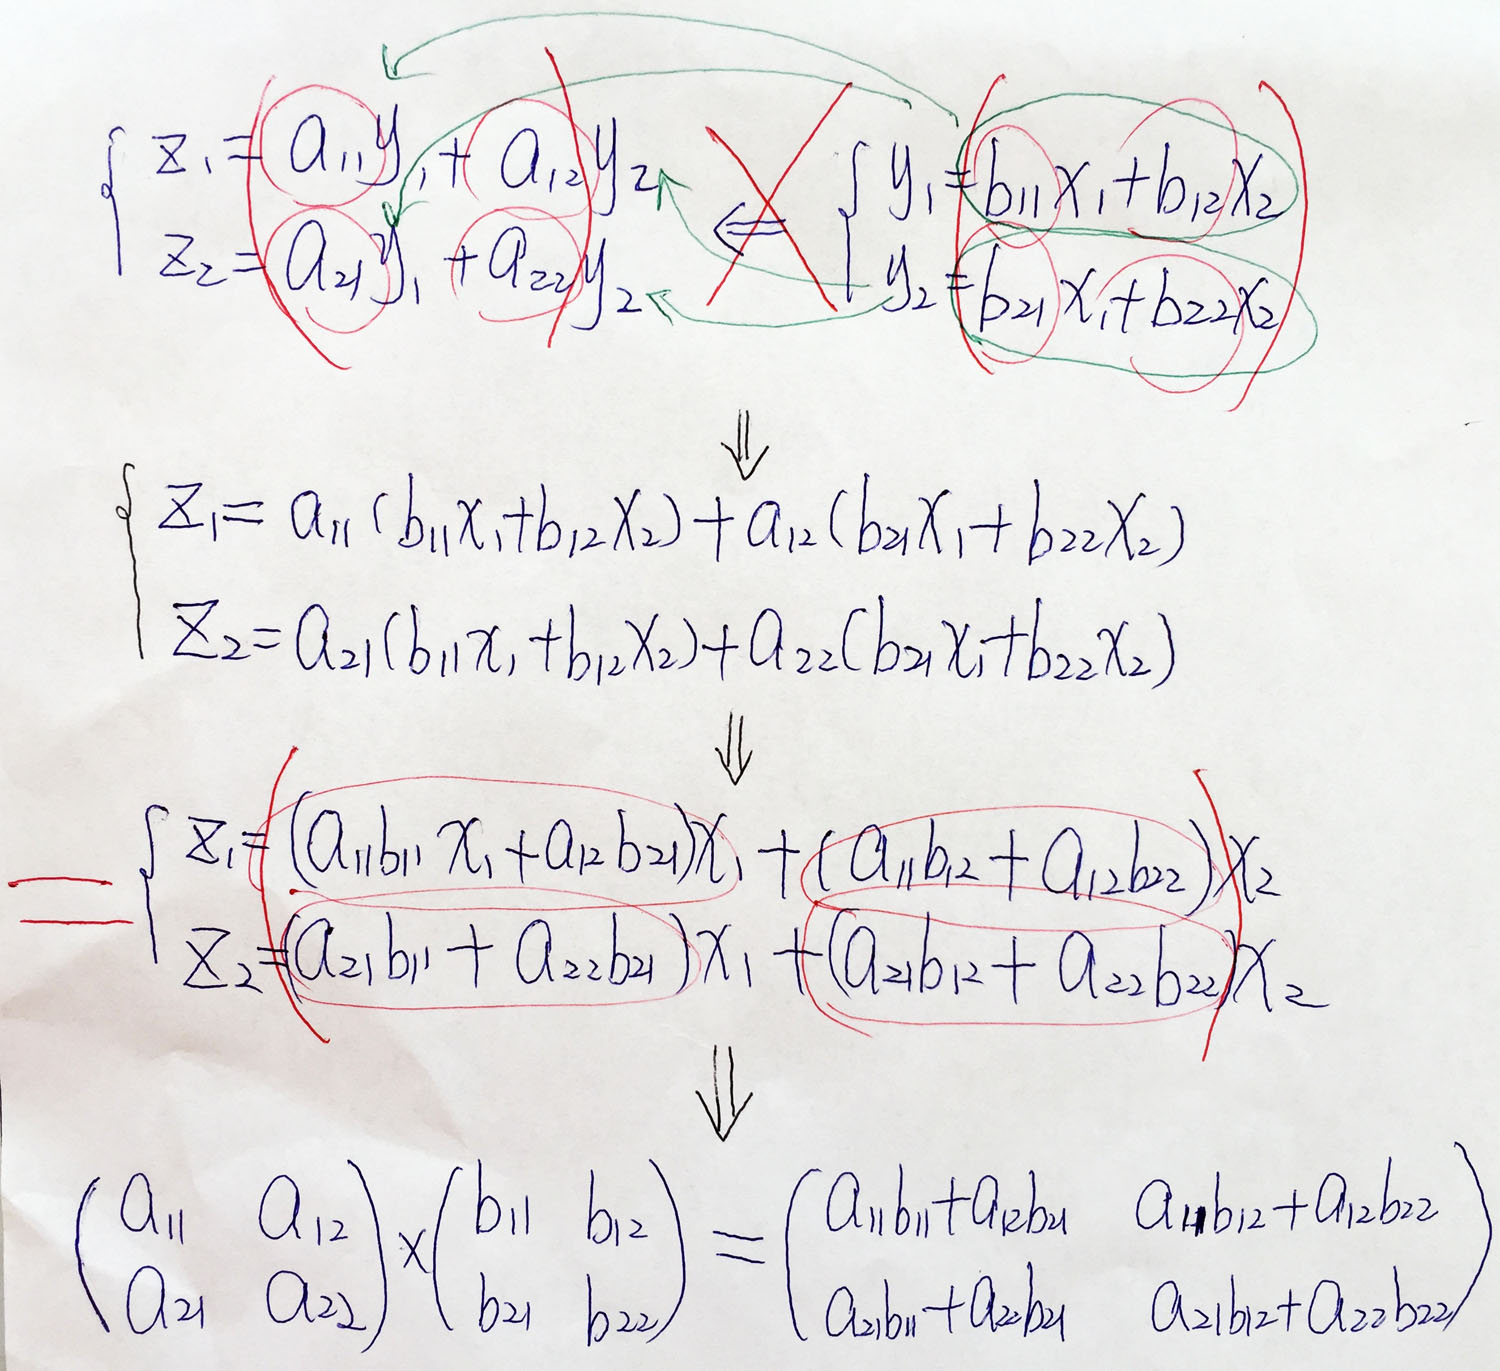 { z₁ = a₁₁y₁ + a₁₂y₂ ⇐ { y₁ = b₁₁x₁ + b₁₂x₂
z₂ = a₂₁y₁ + a₂₂y₂ y₂ = b₂₁x₁ + b₂₂x₂
⇓
{ z₁ = a₁₁(b₁₁x₁ + b₁₂x₂) + a₁₂(b₂₁x₁ + b₂₂x₂)
z₂ = a₂₁(b₁₁x₁ + b₁₂x₂) + a₂₂(b₂₁x₁ + b₂₂x₂)
⇓
= { z₁ = (a₁₁b₁₁ x₁ + a₁₂b₂₁)x₁ + (a₁₁b₁₂ + a₁₂b₂₂)x₂
z₂ = (a₂₁b₁₁ + a₂₂b₂₁)x₁ + (a₂₁b₁₂ + a₂₂b₂₂)x₂
⇓
( a₁₁ a₁₂ ) × ( b₁₁ b₁₂ ) = ( a₁₁b₁₁ + a₁₂b₂₁ a₁₁b₁₂ + a₁₂b₂₂ )
a₂₁ a₂₂ b₂₁ b₂₂ a₂₁b₁₁ + a₂₂b₂₁ a₂₁b₁₂ + a₂₂b₂₂